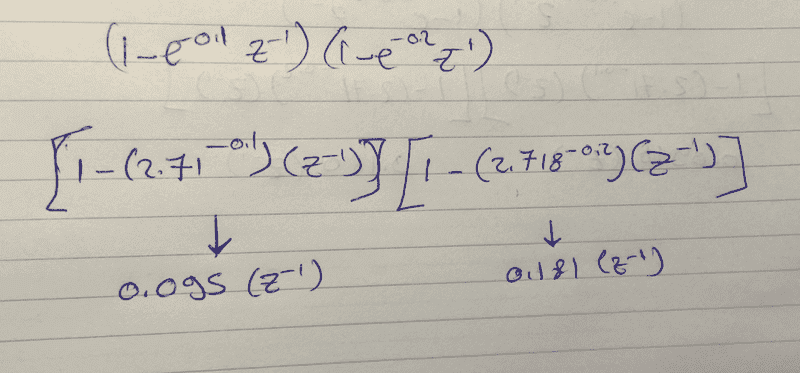 (1-e^-0.1 z^-1) (1-e^-0.2 z^-1)
[1-(2.71^-0.1) (z^-1)] [1-(2.718^-0.2) (z^-1)]
↓ ↓
0.095 (z^-1) 0.181 (z^-1)